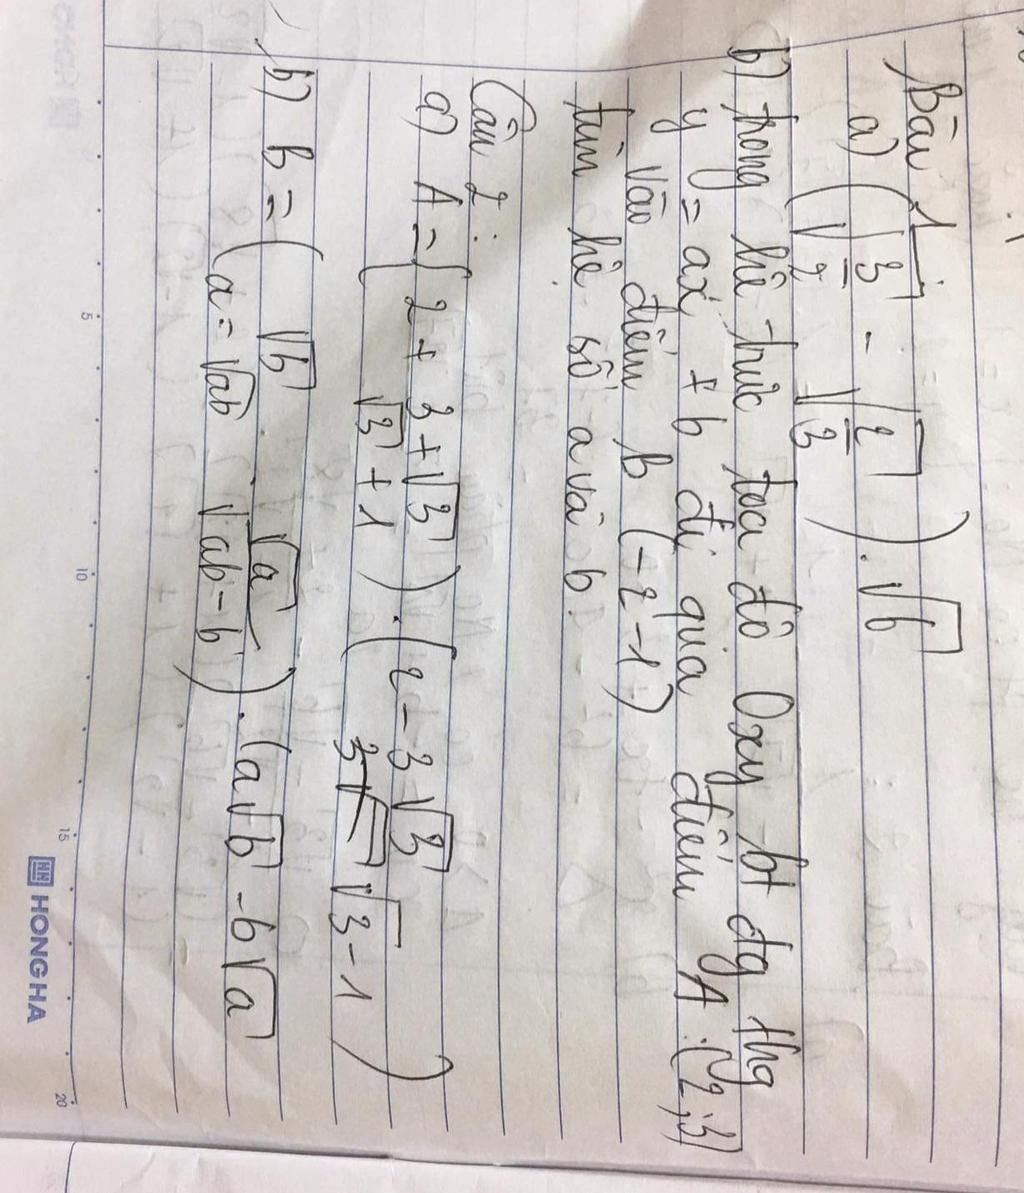 Bài 1
a) (√3/2 - √2/3) . √6
b) trong hệ trục tọa độ Oxy bt đg thg
y = ax + b đi qua điểm A (2;3)
vào điểm b (-2 -1)
tìm hệ số a và b.
Câu 2:
a) A = (2 + 3+√3 / √3 + 1) . (2 - 3√3 / √3-1)
b) B = (√b / a = √ab . √a / √ab-b) . (a√b - b√a
5
10
15
20
HONG HA